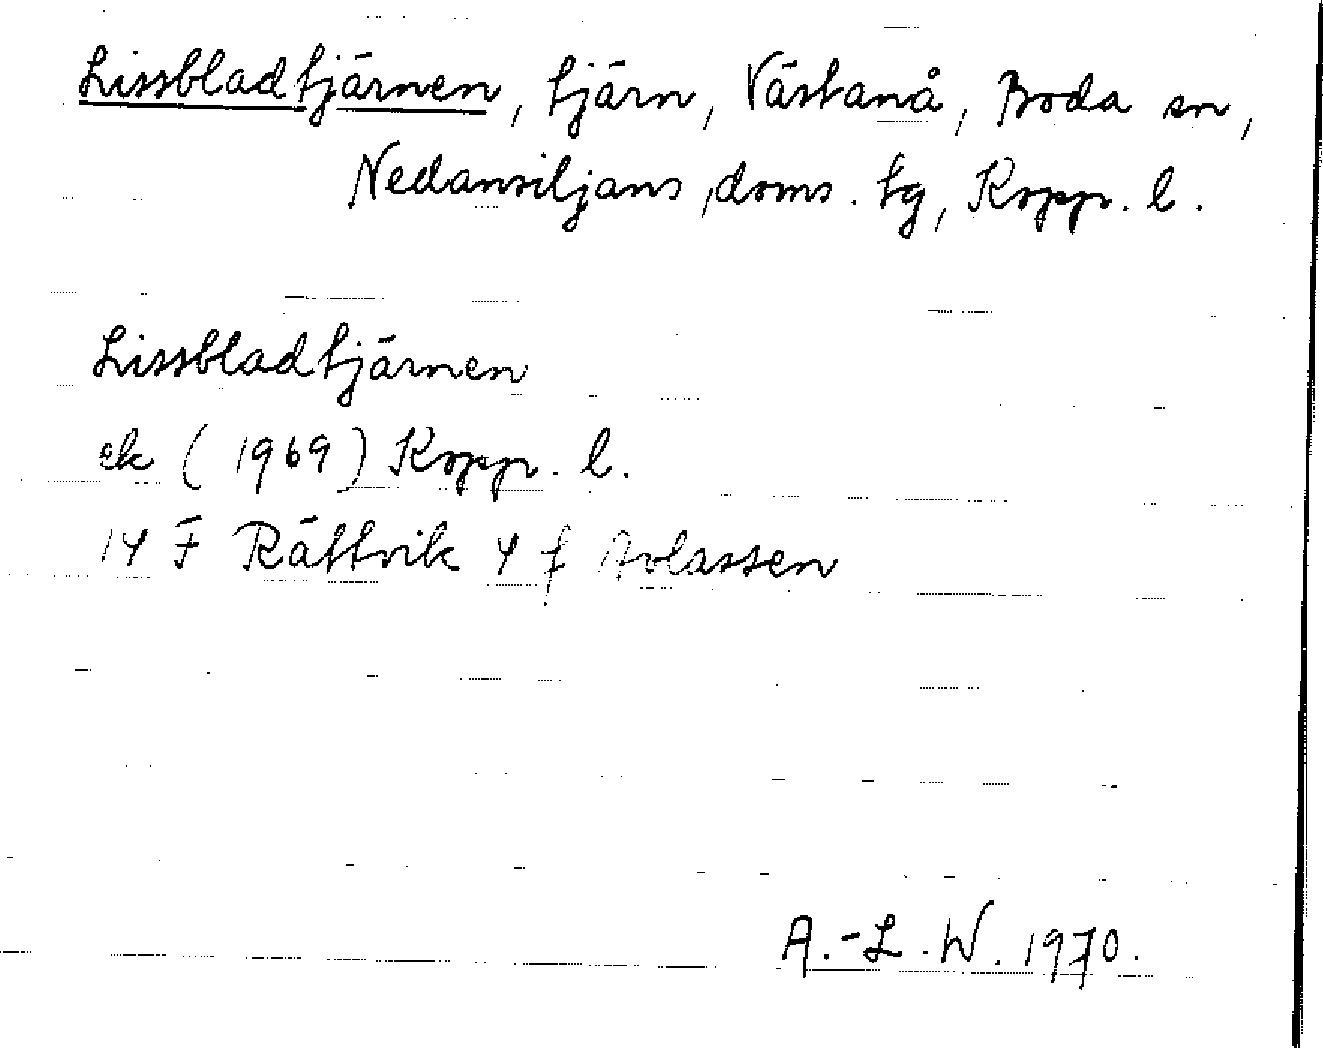 Lissbladtjärnen, tjärn, Västanå, Boda sn,
Nedansiljans doms. tg, Kopp. l.
Lissbladtjärnen
ek (1969) Kopp. l.
14 F Rättvik 4 f Avlassen
A.-L. W. 1970.